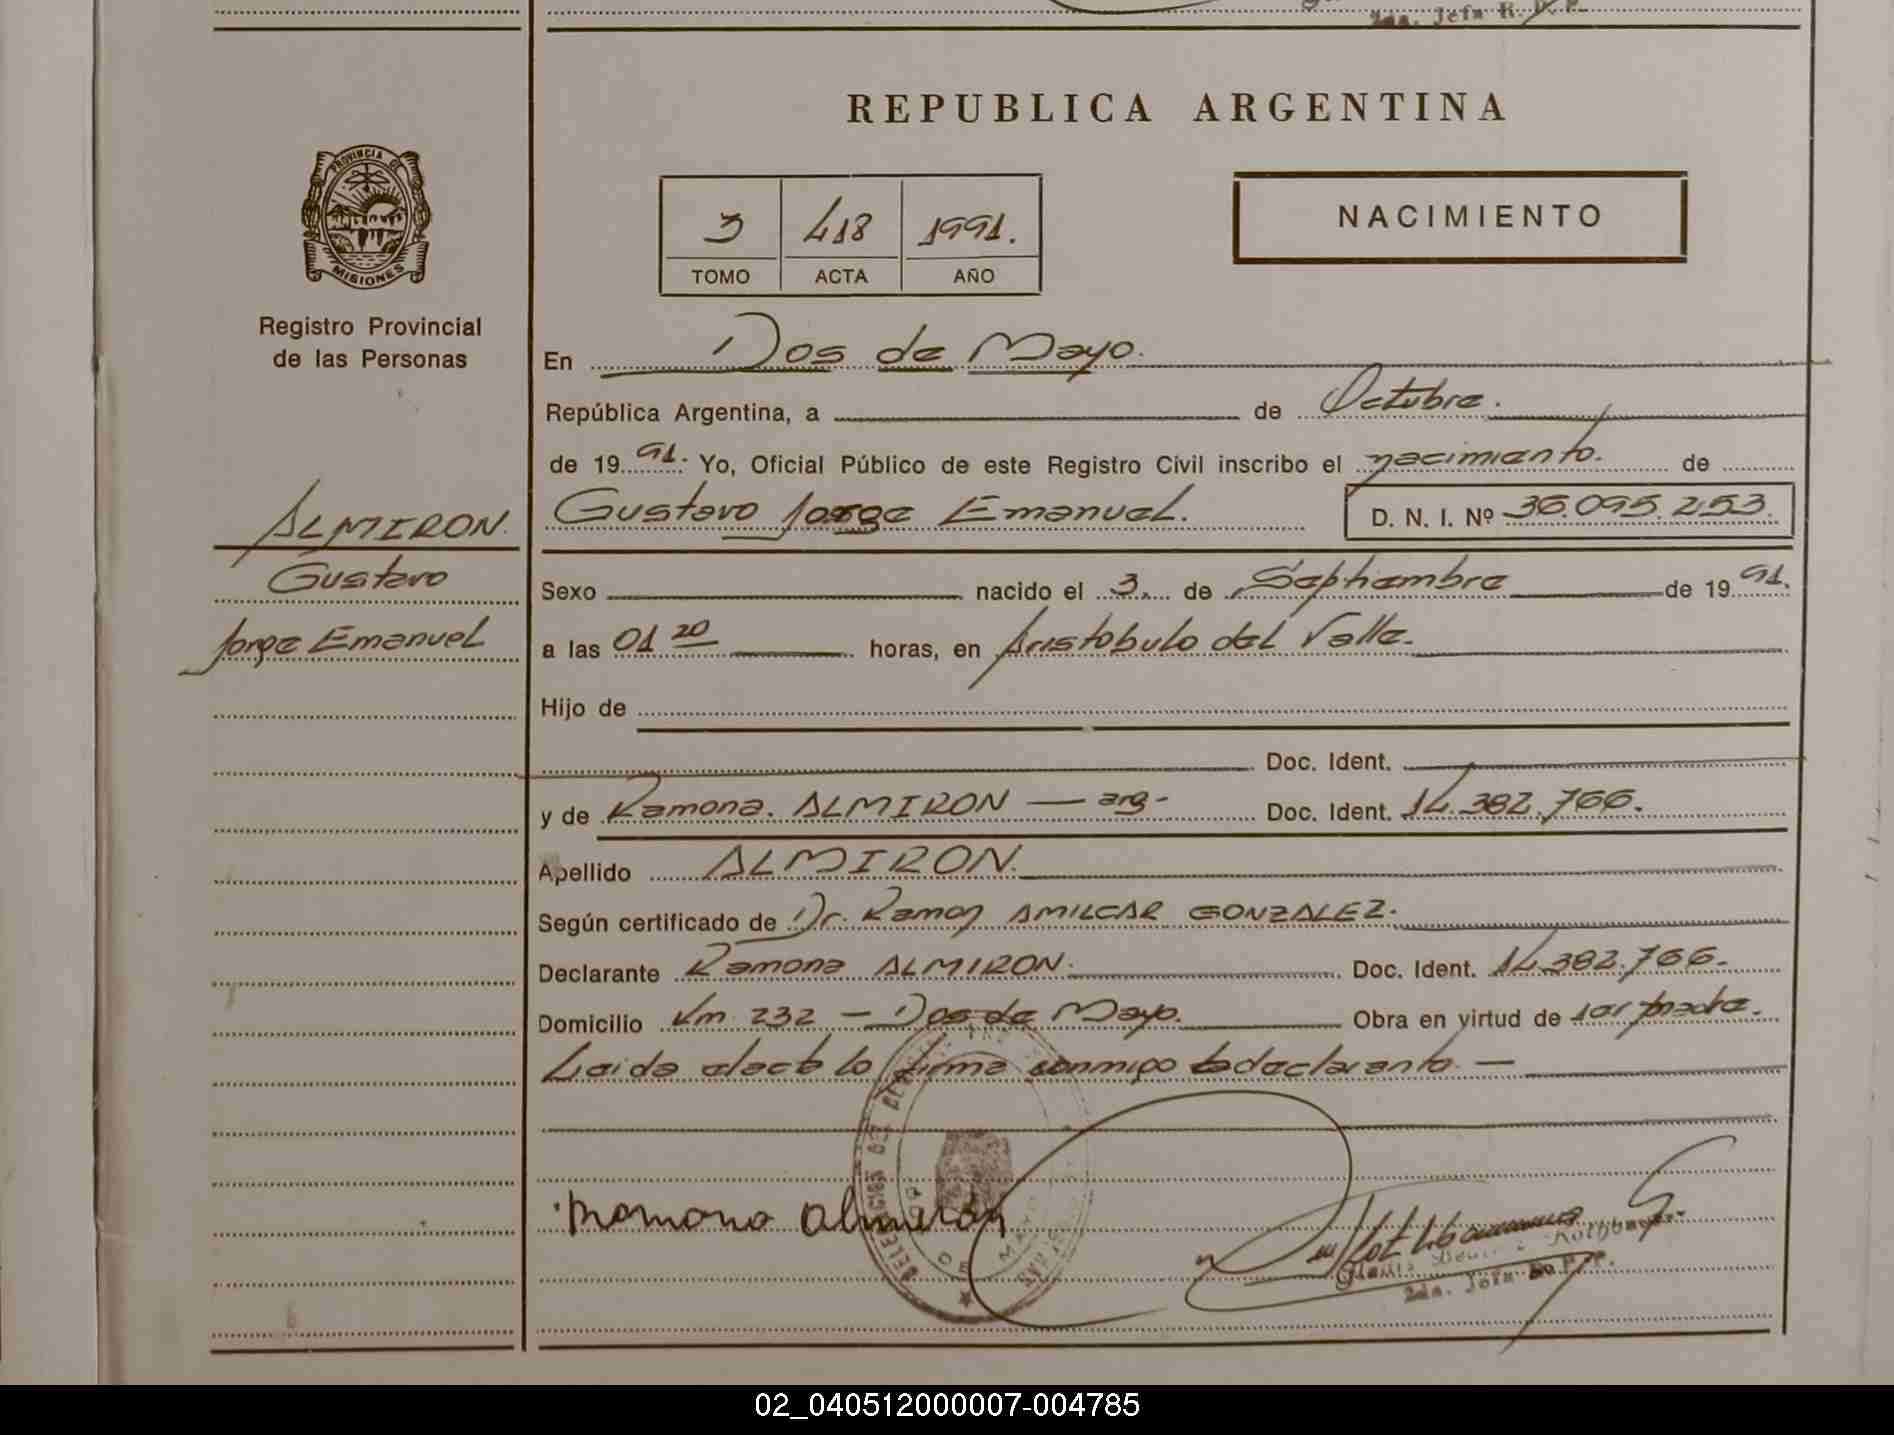 2da. Jefa R. P. P.
REPUBLICA ARGENTINA
PROVINCIA DE
MISIONES
Registro Provincial
de las Personas
3 418 1991.
TOMO ACTA AÑO
NACIMIENTO
En Dos de Mayo.
República Argentina, a de Octubre.
de 1991. Yo, Oficial Público de este Registro Civil inscribo el nacimiento. de
Gustavo Jorge Emanuel. D. N. I. Nº 36.095.253.
ALMIRON.
Gustavo
Jorge Emanuel
Sexo nacido el 3. de Septiembre de 1991.
a las 01 20 horas, en Aristobulo del Valle.
Hijo de
Doc. Ident.
y de Ramona. ALMIRON — arg- Doc. Ident. 14.382.766.
Apellido ALMIRON.
Según certificado de Dr. Ramon AMILCAR GONZALEZ.
Declarante Ramona ALMIRON. Doc. Ident. 14.382.766.
Domicilio Km 232 — Dos de Mayo. Obra en virtud de ser madre.
Leida el acta lo firma conmigo la declarante. —
Ramona Almiron
DELEGACION DOS DE MAYO
2da. Jefa R. P. P.
02_040512000007-004785